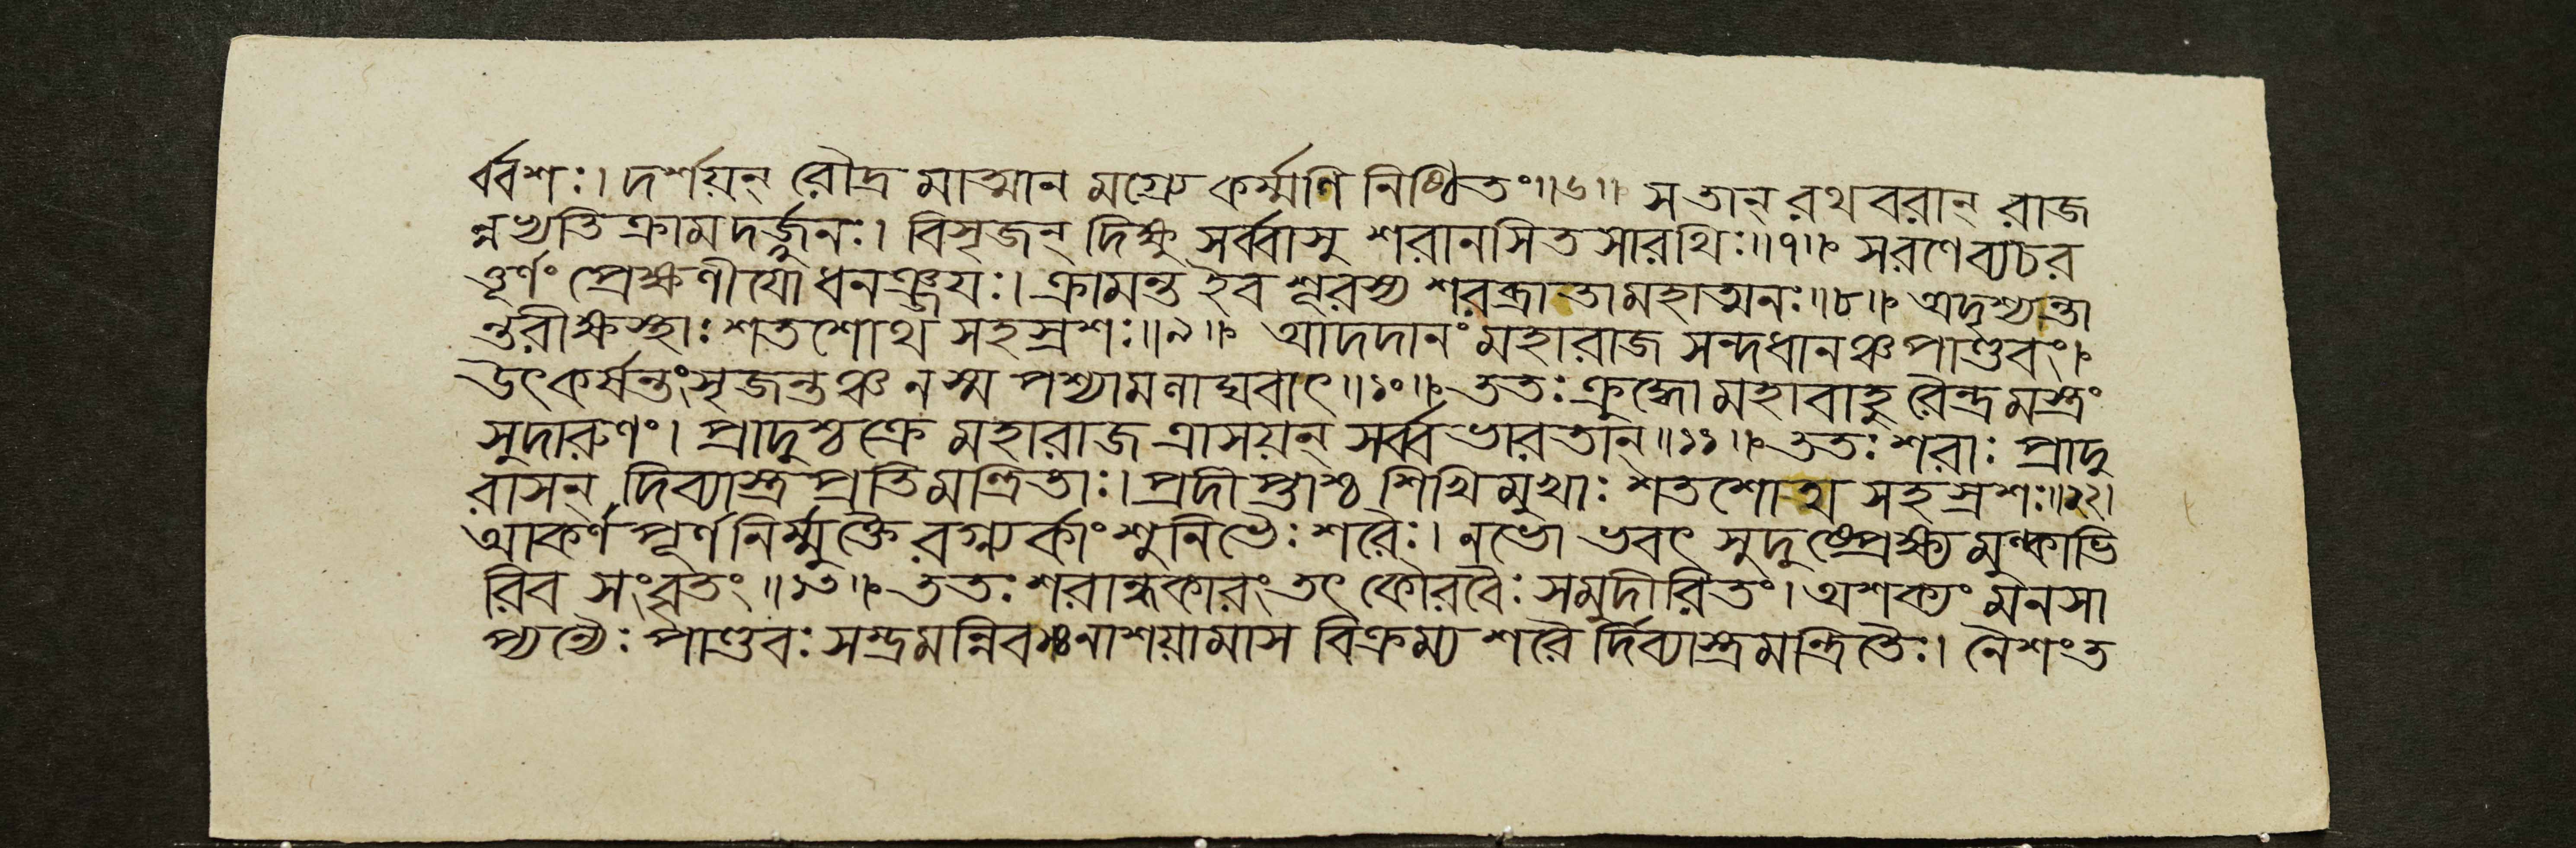 র্ব্বশঃ। দর্শয়ন্ রৌদ্র মাত্মান মগ্রে কর্ম্মণি নিষ্ঠিতং॥৬॥ স তান্ রথ বরান্ রাজ
ন্নত্যতি ক্রামদর্জ্জুনঃ। বিসৃজন্ দিক্ষু সর্ব্বাসু শরানসিত সারথিঃ॥৭॥ স রণে ব্যচর
ত্তূর্ণং প্রেক্ষণীযো ধনঞ্জযঃ। ক্রামন্ত ইব শূরস্য শরব্রাতা মহাত্মনঃ॥৮॥ অদৃশ্যন্তা
ন্তরীক্ষস্থাঃ শতশোথ সহস্রশঃ॥৯॥ আদদানং মহারাজ সন্দধানঞ্চ পাণ্ডবং।
উৎকর্ষন্তং সৃজন্তঞ্চ ন স্ম পশ্যাম লাঘবাৎ॥১০॥ ততঃ ক্রুদ্ধো মহাবাহু রৈন্দ্র মস্ত্রং
সুদারুণং। প্রাদুশ্চক্রে মহারাজ ত্রাসয়ন্ সর্ব্ব ভারতান্॥১১॥ ততঃ শরাঃ প্রাদু
রাসন্ দিব্যাস্ত্র প্রতিমন্ত্রিতাঃ। প্রদীপ্তাশ্চ শিখিমুখাঃ শতশোথ সহস্রশঃ॥১২।
আকর্ণ পূর্ণ নির্ম্মুক্তৈ রগ্ন্যর্কাংশুনিভৈঃ শরৈঃ। নভো ভবৎ সুদুষ্প্রেক্ষ্য মুল্কাভি
রিব সংবৃতং॥১৩॥ ততঃ শরান্ধকারং তৎ কৌরবৈঃ সমুদীরিতং। অশক্যং মনসা
প্যন্যৈঃ পাণ্ডবঃ সম্ভ্রমন্নিব॥ নাশয়ামাস বিক্রম্য শরৈ র্দিব্যাস্ত্র মন্ত্রিতৈঃ। নৈশং ত